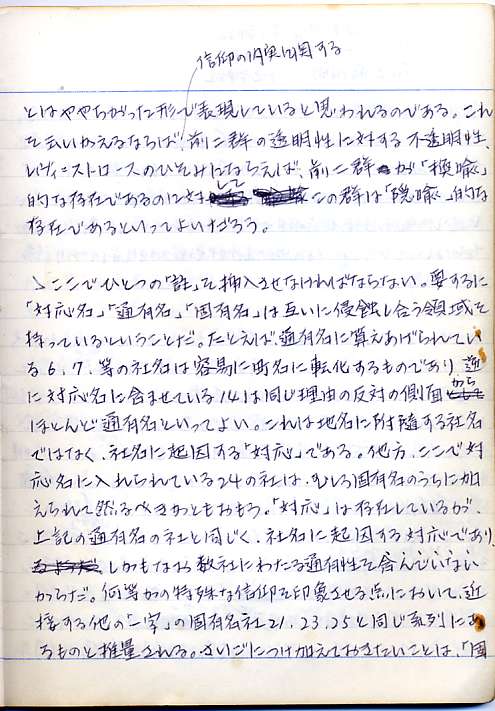 信仰の内実に関する
とはややちがった形で表現していると思われるのである。これ
を云いかえるならば、前二群の透明性に対する不透明性、
レヴィ=ストロースのひそみにならえば、前二群が「換喩」
的な存在であるのに対して この群は「隠喩」的な
存在であるといってよいだろう。
ここでひとつの「註」を挿入させなければならない。要するに
「対応名」「通有名」「固有名」は互いに侵蝕し合う領域を
持っているということだ。たとえば、通有名に算えあげられてい
る6.7.等の社名は容易に町名に転化するものであり、逆
に対応名に含ませている14は同じ理由の反対の側面から
ほとんど通有名といってよい。これは地名に附随する社名
ではなく、社名に起因する「対応」である。他方、ここで対
応名に入れられている24の社は、むしろ固有名のうちに加
えられて然るべきかともおもう。「対応」は存在しているが、
上記の通有名の社と同じく、社名に起因する対応であり、
しかもなお数社にわたる通有性を含んでいない
からだ。何等かの特殊な信仰を印象させる点において、近
接する他の「一字」の固有名社21.23.25と同じ系列にあ
るものと推量される。さいごにつけ加えておきたいことは、「固